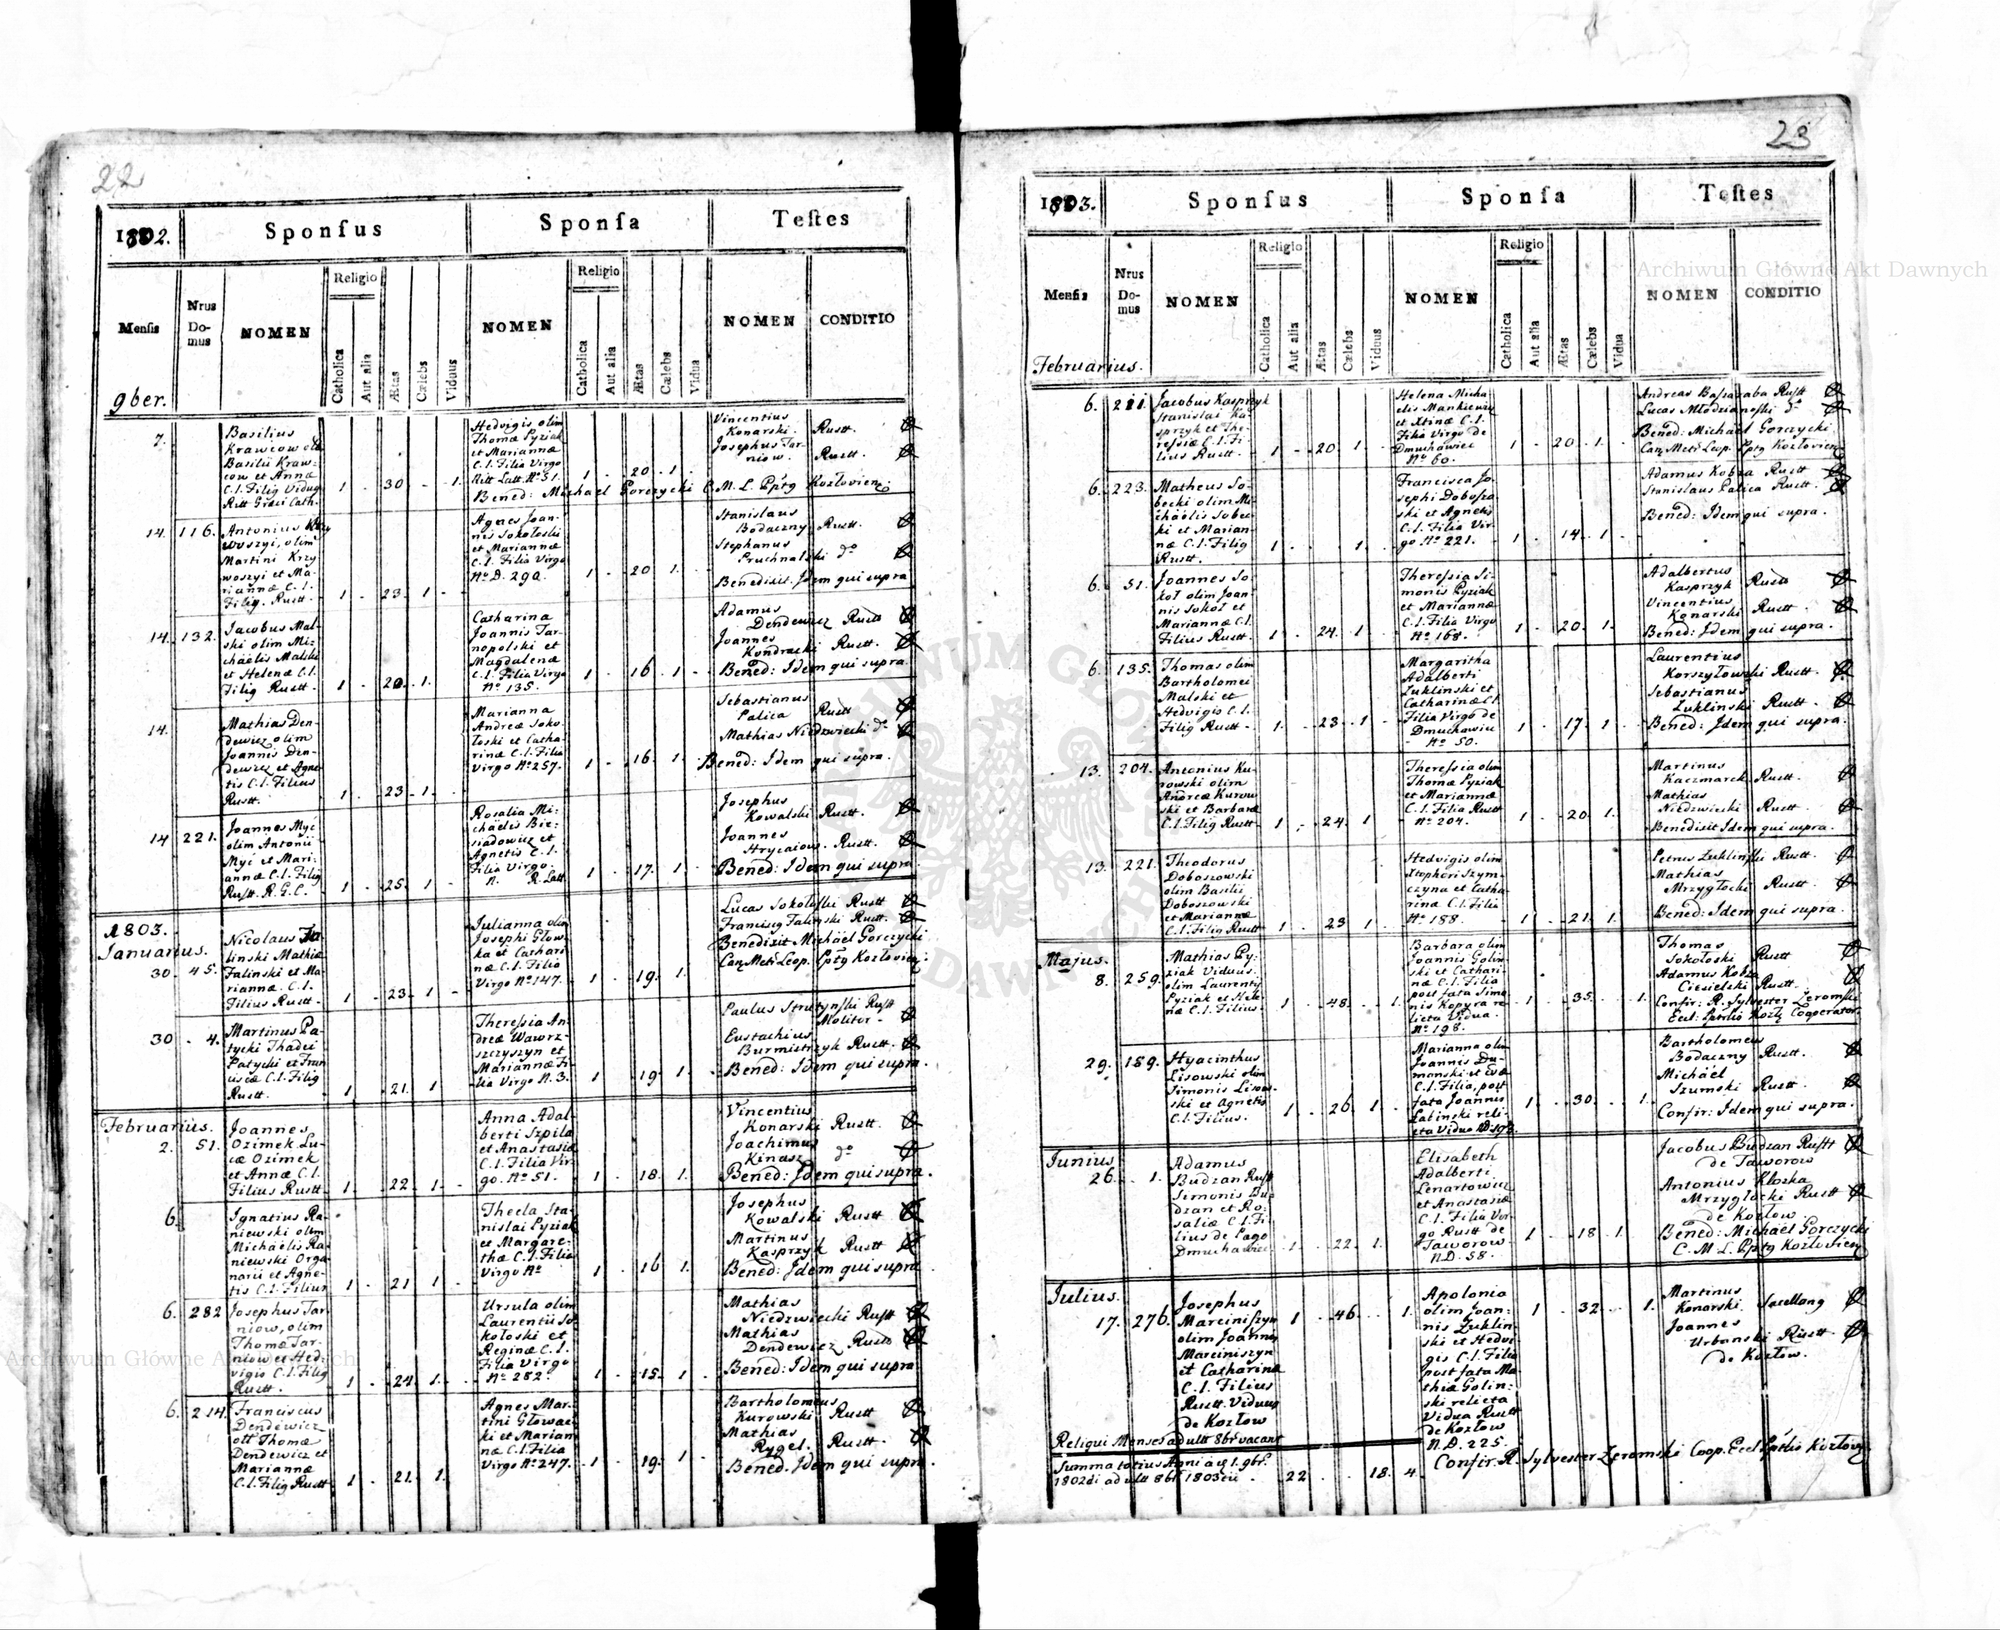 22
1802.
Sponsus
Sponsa
Testes
Mensis
Nrus
Do-
mus
NOMEN
Religio
Catholica
Aut alia
Ætas
Cælebs
Viduus
NOMEN
Religio
Catholica
Aut alia
Ætas
Cælebs
Vidua
NOMEN
CONDITIO
9ber.
7.
Basilius
Krawcow olim
Basilii Kraw-
cow et Annæ
C.l. Filig Viduus
Ritt Græci Cath.
1 . 30 - . 1.
Hedvigis olim
Thomæ Pyziak
et Mariannæ
C.l. Filia Virgo
Ritt Latt. No 51.
1 . 20 . 1.
Vincentius
Konarski. Rustt.
Josephus Tar-
niow. Rustt.
Bened: Michael Gorczycki C.M.L. Pptg Kozłovien:
14. 116.
Antonius Krzy
woszyi, olim
Martini Krzy
woszyi et Ma-
riannæ C.l.
Filig. Rustt.
1 . 23. 1.
Agnes Joan-
nis Sokołoski
et Mariannæ
C.l. Filia Virgo
No D. 290.
1. . 20 1.
Stanislaus
Bodaczny Rustt.
Stephanus
Pruchnalski do
Benedixit. Idem qui supra
14. 132.
Jacobus Mal-
ski olim Mi-
chaëlis Malski
et Helenæ C.l.
Filig Rustt.
1 . 20. 1.
Catharina
Joannis Tar-
nopolski et
Magdalenæ
C.l. Filia Virgo
No 135.
1 . 16 . 1.
Adamus
Dendewicz Rustt
Joannes
Kondracki Rustt.
Bened: Idem qui supra.
14.
Mathias Den-
dewicz olim
Joannis Den-
dewicz et Agne-
tis C.l. Filius
Rustt.
1. . 23. 1.
Marianna
Andreæ Soko-
łoski et Catha-
rinæ C.l. Filia
Virgo No 257.
1 . 16. 1.
Sebastianus
Palica Rustt
Mathias Niedzwiecki do
Bened: Idem qui supra.
14 221.
Joannes Myć
olim Antonii
Myć et Mari-
annæ C.l. Filig
Rustt. R.G.C.
1 . 25. 1
Rosalia Mi-
chaëlis Bie-
siadowicz et
Agnetis C.l.
Filia Virgo.
R. Latt.
1 . 17. 1.
Josephus
Kowalski Rustt.
Joannes
Hrycaiow. Rustt.
Bened: Idem qui supra.
1803.
Januarius.
30. 45.
Nicolaus Fa-
linski Mathiæ
Falinski et Ma-
riannæ. C.l.
Filius Rustt.
1 . 23. 1
Julianna olim
Josephi Głow-
ka et Cathari-
næ C.l. Filia
Virgo No 147.
1 . 19. 1.
Lucas Sokołoski Rustt
Franciscg Falinski Rustt.
Benedixit Michaël Gorczycki
Can. Metr. Leop. Pptg Kozłovien:
30 . 4.
Martinus Pa-
tycki Thadei
Patycki et Fran
ciscæ C.l. Filig
Rustt.
1 . 21. 1
Theressia An-
dreæ Wawrz-
szczyszyn et
Mariannæ Fi-
lia Virgo N. 3.
1 . 19 . 1.
Paulus Strutynski Rustt
Molitor.
Eustachius
Burmistrzyk Rustt.
Bened: Idem qui supra.
Februarius.
2. 51.
Joannes
Ozimek Lu-
cæ Ozimek
et Annæ C.l.
Filius Rustt.
1. . 22. 1.
Anna Adal-
berti Szpila
et Anastasiæ
C.l. Filia Vir-
go. No 51.
1 . 18. 1.
Vincentius
Konarski Rustt.
Joachimus
Kinasz do
Bened: Idem qui supra.
6.
Ignatius Ra-
niewski olim
Michaëlis Ra-
niewski Orga-
narii et Agne-
tis C.l. Filius
1 . 21 1.
Thecla Sta-
nislai Pyziak
et Margare-
thæ C.l. Filia
Virgo No
1 . 16 1.
Josephus
Kowalski Rustt
Martinus
Kasprzyk Rustt
Bened: Idem qui supra.
6. 282
Josephus Tar-
niow, olim
Thomæ Tar-
niow et Hed-
vigis C.l. Filig
Rustt.
1 . 24. 1.
Ursula olim
Laurentii So
kołoski et
Reginæ C.l.
Filia Virgo
No 282.
1 . 15. 1
Mathias
Niedzwiecki Rustt
Mathias
Dendewicz Rustt
Bened: Idem qui supra
6. 214.
Franciscus
Dendewicz
olt Thomæ
Dendewicz et
Mariannæ
C.l. Filig Rustt
1 . 21. 1.
Agnes Mar-
tini Głowac-
ki et Marian-
næ C.l. Filia
Virgo No 247.
1 . 19. 1.
Bartholomeus
Kurowski Rustt
Mathias
Rygel. Rustt.
Bened. Idem qui supra.
23
1803.
Sponsus
Sponsa
Testes
Mensis
Nrus
Do-
mus
NOMEN
Religio
Catholica
Aut alia
Ætas
Cælebs
Viduus
NOMEN
Religio
Catholica
Aut alia
Ætas
Cælebs
Vidua
NOMEN
CONDITIO
Februarius.
6. 211.
Jacobus Kasprzyk
Stanislai Ka-
sprzyk et The-
ressiæ C.l. Fi-
lius Rustt.
1 . 20 . 1.
Helena Micha-
elis Mankiewicz
et Xtinæ C.l.
Filia Virgo de
Dmuchawiec
No 60.
1 . 20 . 1.
Andreas Bassaraba Rustt
Lucas Młodzianoski do
Bened: Michaël Gorczycki
Can. Metr. Leop. Pptg Kozłovien:
6. 223.
Matheus So-
becki olim Mi-
chaëlis Sobec-
ki et Marian-
næ C.l. Filig
Rustt.
1 . . 1.
Francisca Jo-
sephi Dobosza-
ski et Agnetis
C.l. Filia Vir-
go No 221.
1 . 14. 1.
Adamus Kobza Rustt
Stanislaus Palica Rustt.
Bened: Idem qui supra.
6. 51.
Joannes So-
koł olim Joan-
nis Sokoł et
Mariannæ C.l.
Filius Rustt.
1 . 24. 1.
Theressia Si-
monis Pyziak
et Mariannæ
C.l. Filia Virgo
No 168.
1 . 20. 1.
Adalbertus
Kasprzyk Rustt
Vincentius
Konarski Rustt.
Bened: Idem qui supra.
6. 135.
Thomas olim
Bartholomei
Malski et
Hedvigis C.l.
Filig Rustt.
1. . 23. 1
Margaritha
Adalberti
Zuklinski et
Catharinæ C.l.
Filia Virgo de
Dmuchawiec
No 50.
1 . 17. 1.
Laurentius
Korszyłowski Rustt.
Sebastianus
Zuklinski Rustt.
Bened: Idem qui supra.
13. 204.
Antonius Ku-
rowski olim
Andreæ Kurow
ski et Barbaræ
C.l. Filig Rustt.
1 . 24. 1
Theressia olim
Thomæ Pyziak
et Mariannæ
C.l. Filia Rustt
No 204.
1 . 20 1.
Martinus
Kaczmarek Rustt.
Mathias
Niedzwiecki Rustt.
Benedixit Idem qui supra.
13. 221.
Theodorus
Doboszowski
olim Basilii
Doboszowski
et Mariannæ
C.l. Filig Rustt
1 . 23 1.
Hedvigis olim
Xtophori Szym-
czyna et Catha-
rinæ C.l. Filia
No 188.
1 . 21. 1.
Petrus Zuklinski Rustt.
Mathias
Mrzygłocki Rustt.
Bened: Idem qui supra.
Majus.
8. 259.
Mathias Py-
ziak Viduus
olim Laurentii
Pyziak et Hele-
næ C.l. Filius.
1 . 48. 1.
Barbara olim
Joannis Golin-
ski et Cathari-
næ C.l. Filia
post fata Simo-
nis Kopyra re-
licta Vidua.
No 198.
1 . 35. 1.
Thomas
Sokołoski Rustt
Adamus Kobza
Ciesielski Rustt.
Confir: R. Sylvester Zeromski
Eccl: Pptlis Kozłg Cooperator.
29. 159.
Hyacinthus
Lisowski olim
Simonis Lisow-
ski et Agnetis
C.l. Filius.
1 . 26. 1.
Marianna olim
Joannis Du-
manski et Evæ
C.l. Filia, post
fata Joannis
Labinski reli-
cta Vidua
1 . 30. 1.
Bartholomeus
Bodaczny Rustt.
Michaël
Szumski Rustt.
Confir: Idem qui supra.
Junius.
26. 1.
Adamus
Budzan Rustt
Simonis Bu-
dzan et Ro-
saliæ C.l. Fi-
lius de Pago
Dmuchawiec
1 . 22. 1.
Elisabeth
Adalberti
Lenartowicz
et Anastasiæ
C.l. Filia Vir-
go Rustt de
Jaworow
N.D. 58.
1 . 18 1.
Jacobus Budzan Rustt
de Jaworow
Antonius Kloska
Mrzygłocki Rustt
de Kozłow.
Bened: Michaël Gorczycki
C.M.L. Pptg Kozłovien:
Julius.
17. 276.
Josephus
Marciniszyn
olim Joannis
Marciniszyn
et Catharinæ
C.l. Filius
Rustt. Viduus
de Kozłow
1 . 46. . 1.
Apolonia
olim Joan-
nis Zuklin-
ski et Hedvi-
gis C.l. Filia
post fata Ma-
thiæ Golin-
ski relicta
Vidua Rustt
de Kozłow
N.D. 225.
1 . 32. . 1.
Martinus
Konarski
Joannes
Urbanski Rustt.
de Kozłow.
Confir. R. Sylvester Zeromski Coop. Eccl Pptlis Kozłovg.
Reliqui Menses ad ultt 8br vacant
Summa totius Anni a 1. 9br.
1802di ad ultt 8br 1803tii . 22 . . 18. 4.
Archiwum Główne Akt Dawnych
Archiwum Główne Akt Dawnych
ARCHIWUM GŁÓWNE AKT DAWNYCH